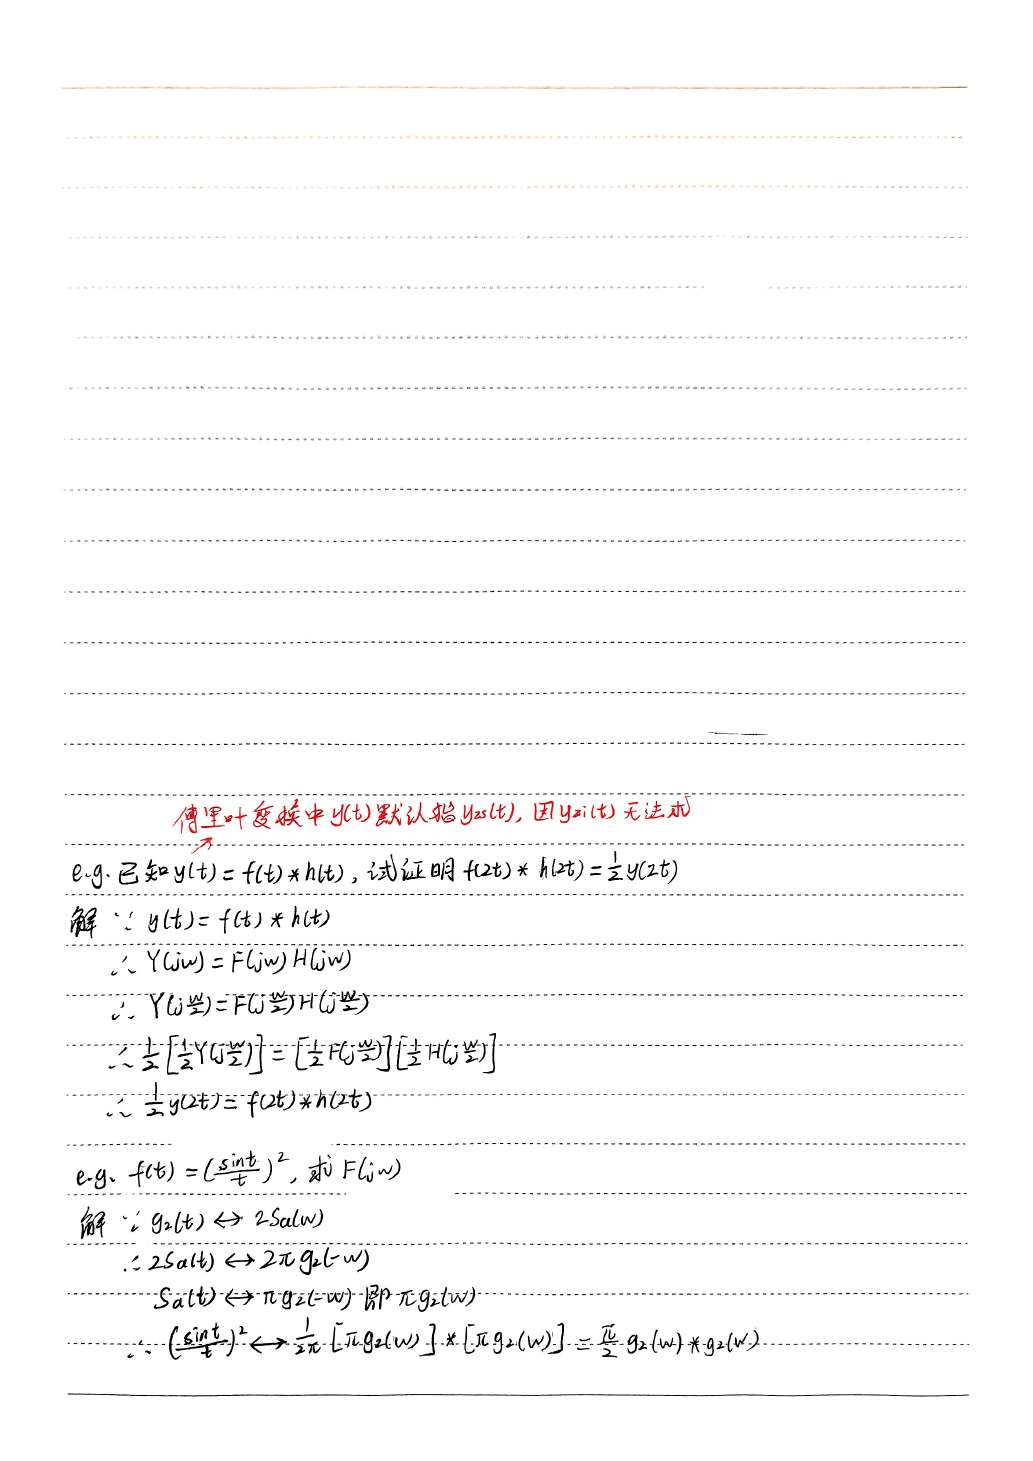 傅里叶变换中y(t)默认指yzs(t), 因yzi(t)无法求
e.g. 已知y(t)=f(t)*h(t), 试证明f(2t)*h(2t)=½y(2t)
解 ∵ y(t)=f(t)*h(t)
∴ Y(jw)=F(jw)H(jw)
∴ Y(j w/2)=F(j w/2)H(j w/2)
∴ ½[½Y(j w/2)]=[½F(j w/2)][½H(j w/2)]
∴ ½y(2t)=f(2t)*h(2t)
e.g. f(t)=(sint/t)², 求F(jw)
解 ∵ g₂(t)↔2Sa(w)
∴ 2Sa(t)↔2πg₂(-w)
Sa(t)↔πg₂(-w) 即πg₂(w)
∴ (sint/t)²↔1/2π[πg₂(w)]*[πg₂(w)]=π/2 g₂(w)*g₂(w)